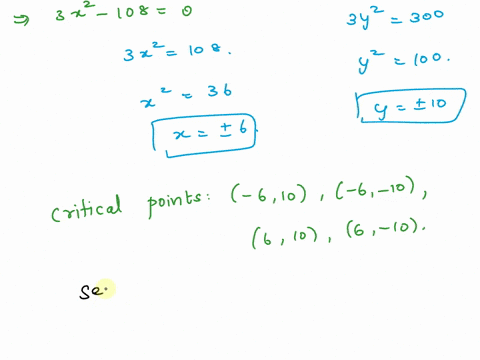 ⇒ 3x² - 108 = 0
3x² = 108.
x² = 36
x = ± 6.
3y² = 300
y² = 100.
y = ± 10
Critical points: (-6, 10), (-6, -10),
(6, 10), (6, -10).
Se